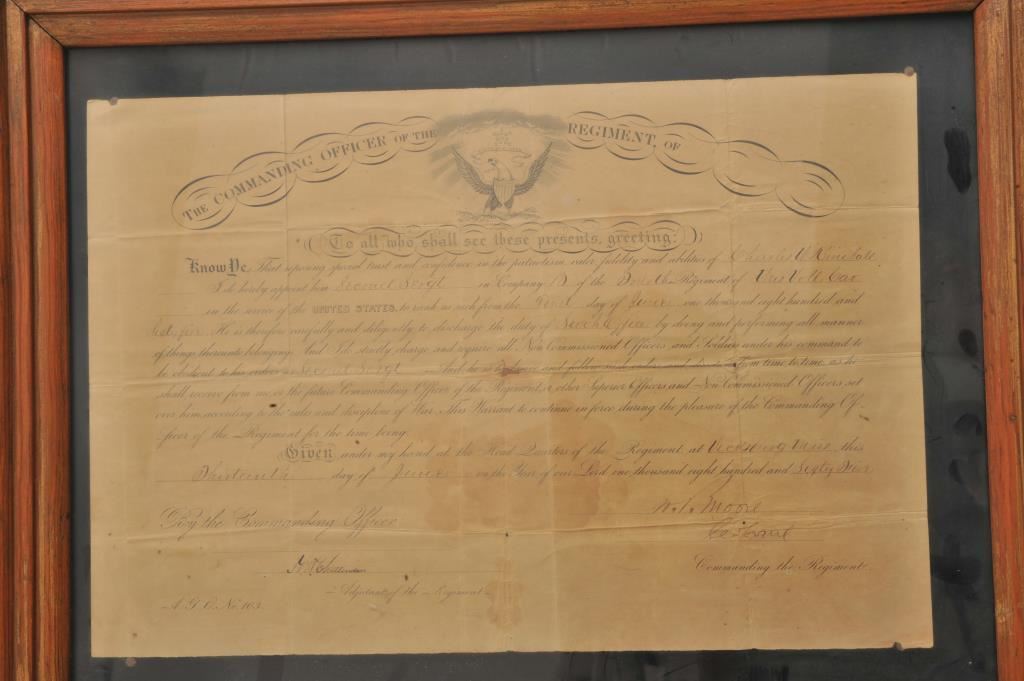 THE COMMANDING OFFICER OF THE REGIMENT, OF
To all who shall see these presents, greeting:
Know Ye, That reposing special trust and confidence in the patriotism, valor, fidelity and abilities of Charles
I do hereby appoint him Second Sergt in Company D of the Regiment of Vols Cav
in the service of the UNITED STATES, to rank as such from the day of June one thousand eight hundred and
He is therefore carefully and diligently to discharge the duty of by doing and performing all manner
of things thereunto belonging. And I do strictly charge and require all Non-Commissioned Officers and Soldiers under his command to
be obedient to his orders as Second Sergt And he is to observe and follow such orders and directions from time to time, as he
shall receive from me, or the future Commanding Officer of the Regiment, or other Superior Officers and Non-Commissioned Officers set
over him, according to the rules and discipline of War. This Warrant to continue in force during the pleasure of the Commanding Of-
ficer of the Regiment for the time being.
Given under my hand at the Head Quarters of the Regiment at Vicksburg Miss this
Thirteenth day of June in the Year of our Lord one thousand eight hundred and Sixty
By the Commanding Officer
Moore
Commanding the Regiment.
Adjutant of the Regiment.
A. G. O. No. 103.